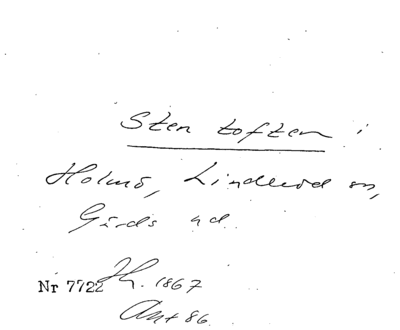 Sten toften i
Holmö, Linderöd sn,
Gärds hd.
Nr 7722 H. 1867
Ant 86.